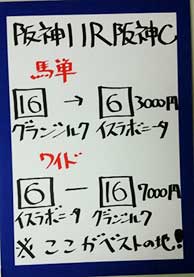 阪神11R阪神C
馬単
16 → 6 3000円
グランシルク イスラボニータ
ワイド
6 ― 16 7000円
イスラボニータ グランシルク
※ここがベストの地!